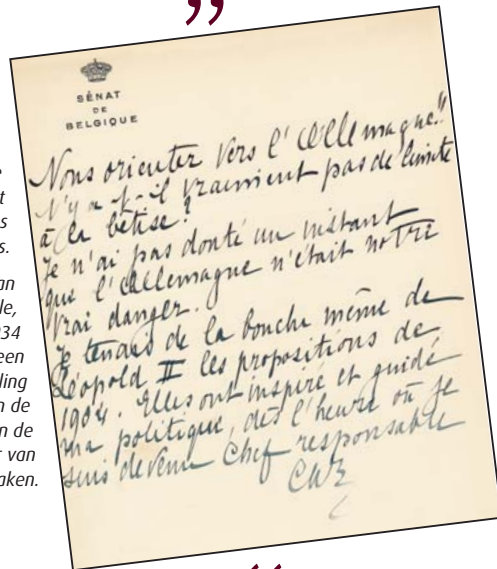 ”
SÉNAT
DE
BELGIQUE
Nous orienter vers l'Allemagne!!
N'y a-t-il vraiment pas de limite
à la bêtise?
Je n'ai pas douté un instant
que l'Allemagne n'était notre
vrai danger.
Je tenais de la bouche même de
Léopold II les propositions de
1904. Elles ont inspiré et guidé
ma politique, dès l'heure où je
suis devenu Chef responsable
t
s
s.
an
le,
934
een
ling
n de
n de
r van
aken.
“